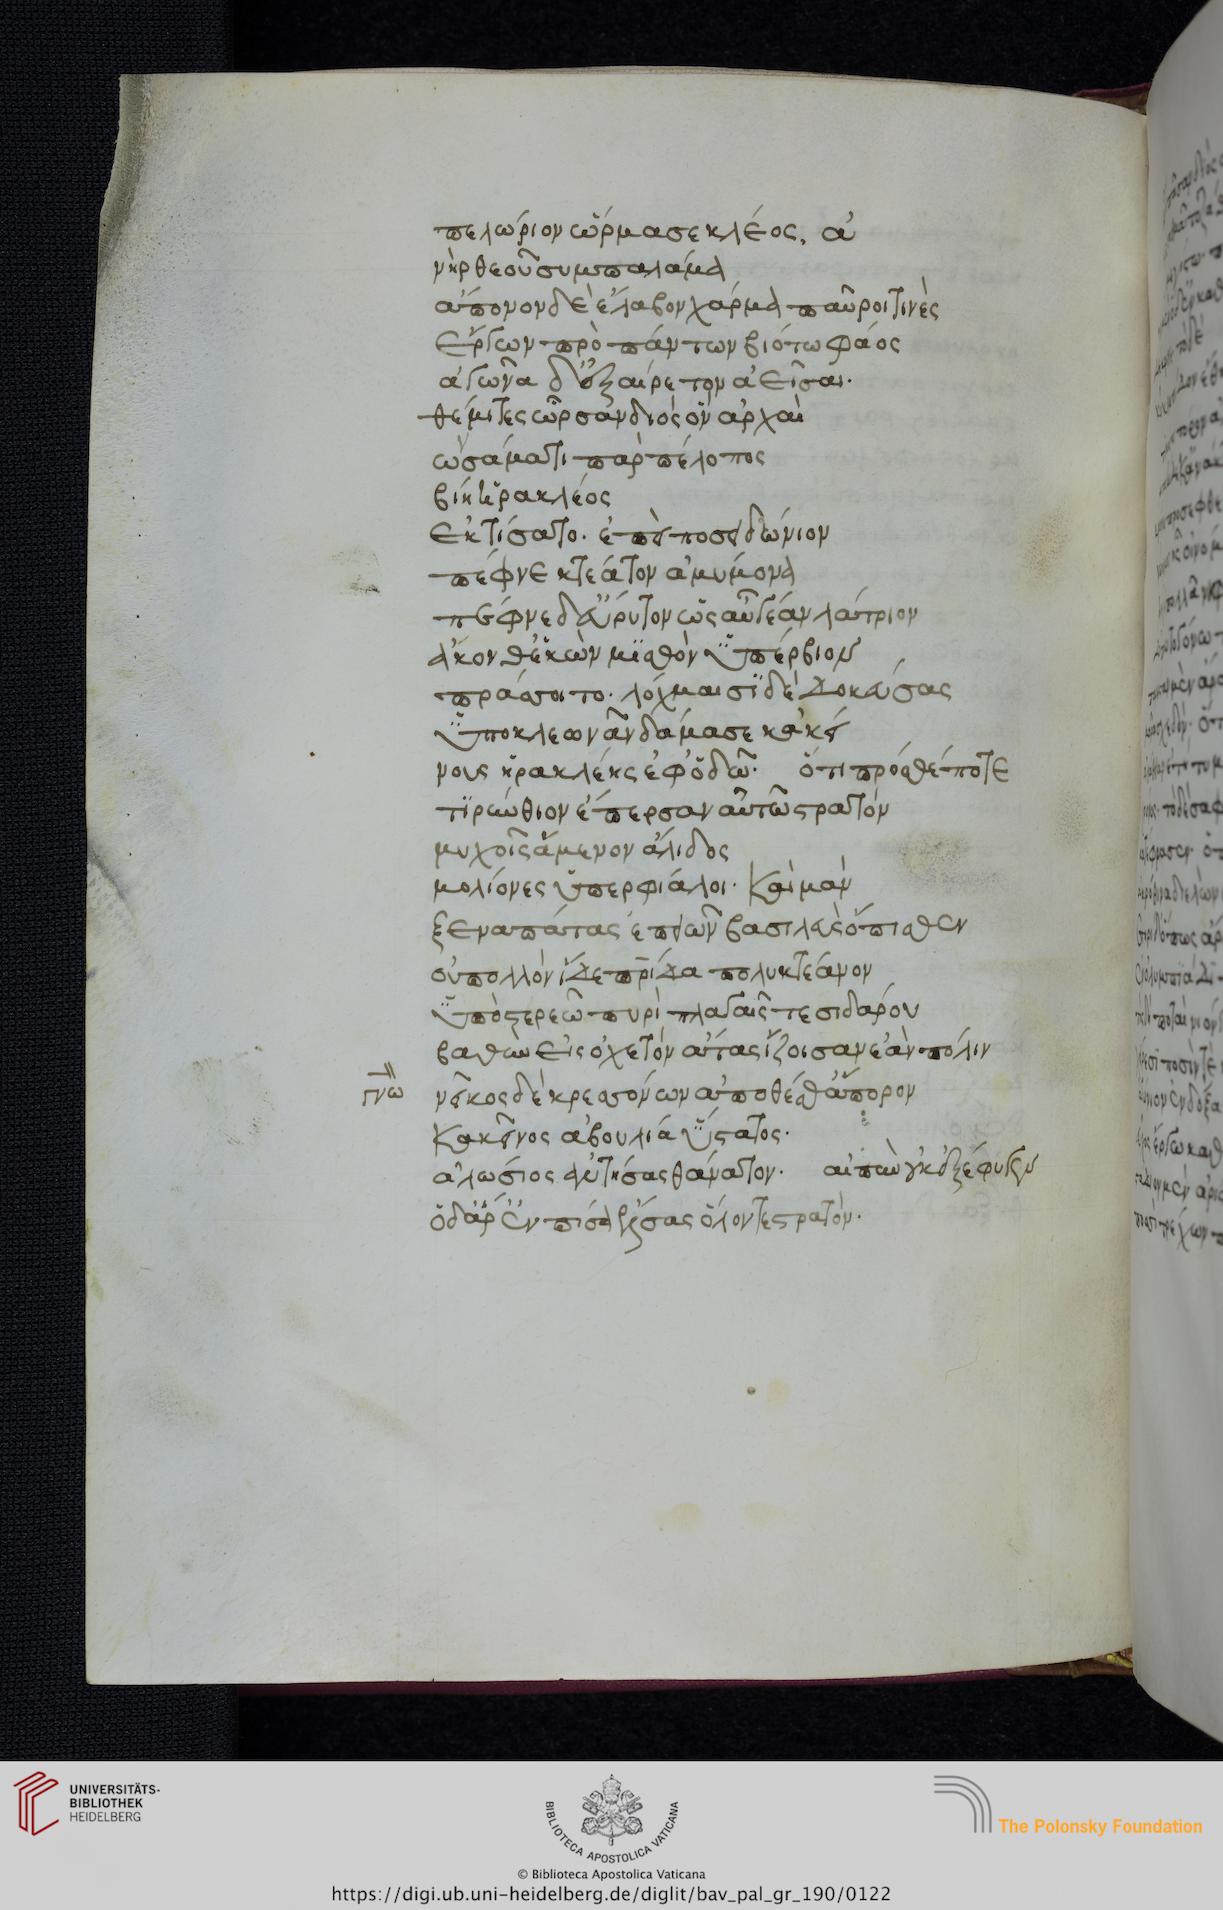 πελώριον ὥρμασε κλέος, ἀ
νὴρ θεοῦ συμπαλάμα
ἄπονον δὲ ἔλαβον χάρμα παῦροι τινὲς
ἔργων πρὸ πάντων βιότω φάος
ἀγῶνα δ' ἐξαίρετον ἀεῖσαι.
θέμιτες ὦρσαν διὸς ὃν ἀρχαὶ
ὡ σάματι παρ πέλοπος
βίη ἡρακλέος
ἐκτίσατο. ἐπεὶ ποσειδώνιον
πέφνε κτέατον ἀμύμονα
πέφνε δ' εὔρυτον ὡς αὐγέαν λάτριον
ἄκονθ' ἑκὼν μϊσθὸν ὑπέρβιον
πράσσοιτο. λόχμαισϊ δὲ δοκεύσας
ὑπο κλεωνᾶν δάμασε κακεί
νους ἡρακλέης ἐφ' ὁδῶ. ὅτι πρόσθέ ποτε
τϊρύνθιον ἔπερσαν αὐτῶ στρατόν
μυχοῖς ἄμενον ἄλιδος
μολίονες ὑπερφιάλοι. Καὶ μὰν
ξεναπάτας ἐπειῶν βασιλεὺς ὄπισθεν
οὐ πολλὸν ἴδε πρίδα πολυκτέανον
ὑπὸ στερεῶ πυρὶ πλαγαῖς τε σιδάρου
βαθὺν εἰς ὀχετὸν ἄτας ἵζοισαν ἑὰν πόλιν
γνω
νεῖκος δὲ κρεσσόνων ἀποθέσθ' ἄπορον
Κακεῖνος ἀβουλία ὕστατος.
ἁλώσιος ἀντήσας θάνατον. αἰπὺν οὐκ ἐξέφυγεν
ὁ δ' ἄρ' ἐν πίσα ἔλσας ὅλον τε στρατὸν.
UNIVERSITÄTS-
BIBLIOTHEK
HEIDELBERG
BIBLIOTECA APOSTOLICA VATICANA
The Polonsky Foundation
© Biblioteca Apostolica Vaticana
https://digi.ub.uni-heidelberg.de/diglit/bav_pal_gr_190/0122